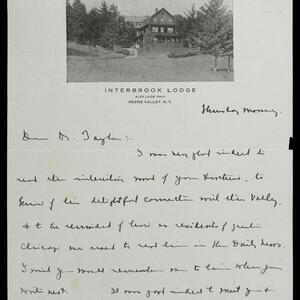 INTERBROOK LODGE
ALEX LUCK, PROP.
KEENE VALLEY, N.Y.
Thursday morning.
Dear Dr. Taylor:-
I was very glad indeed to
read the interesting word of your brothers, to
know of his delightful connection with the Valley,
& to be reminded of him as residents of greater
Chicago we used to read him in the Daily News.
I wish you would remember me to him when you
write next. It was good indeed to meet you &